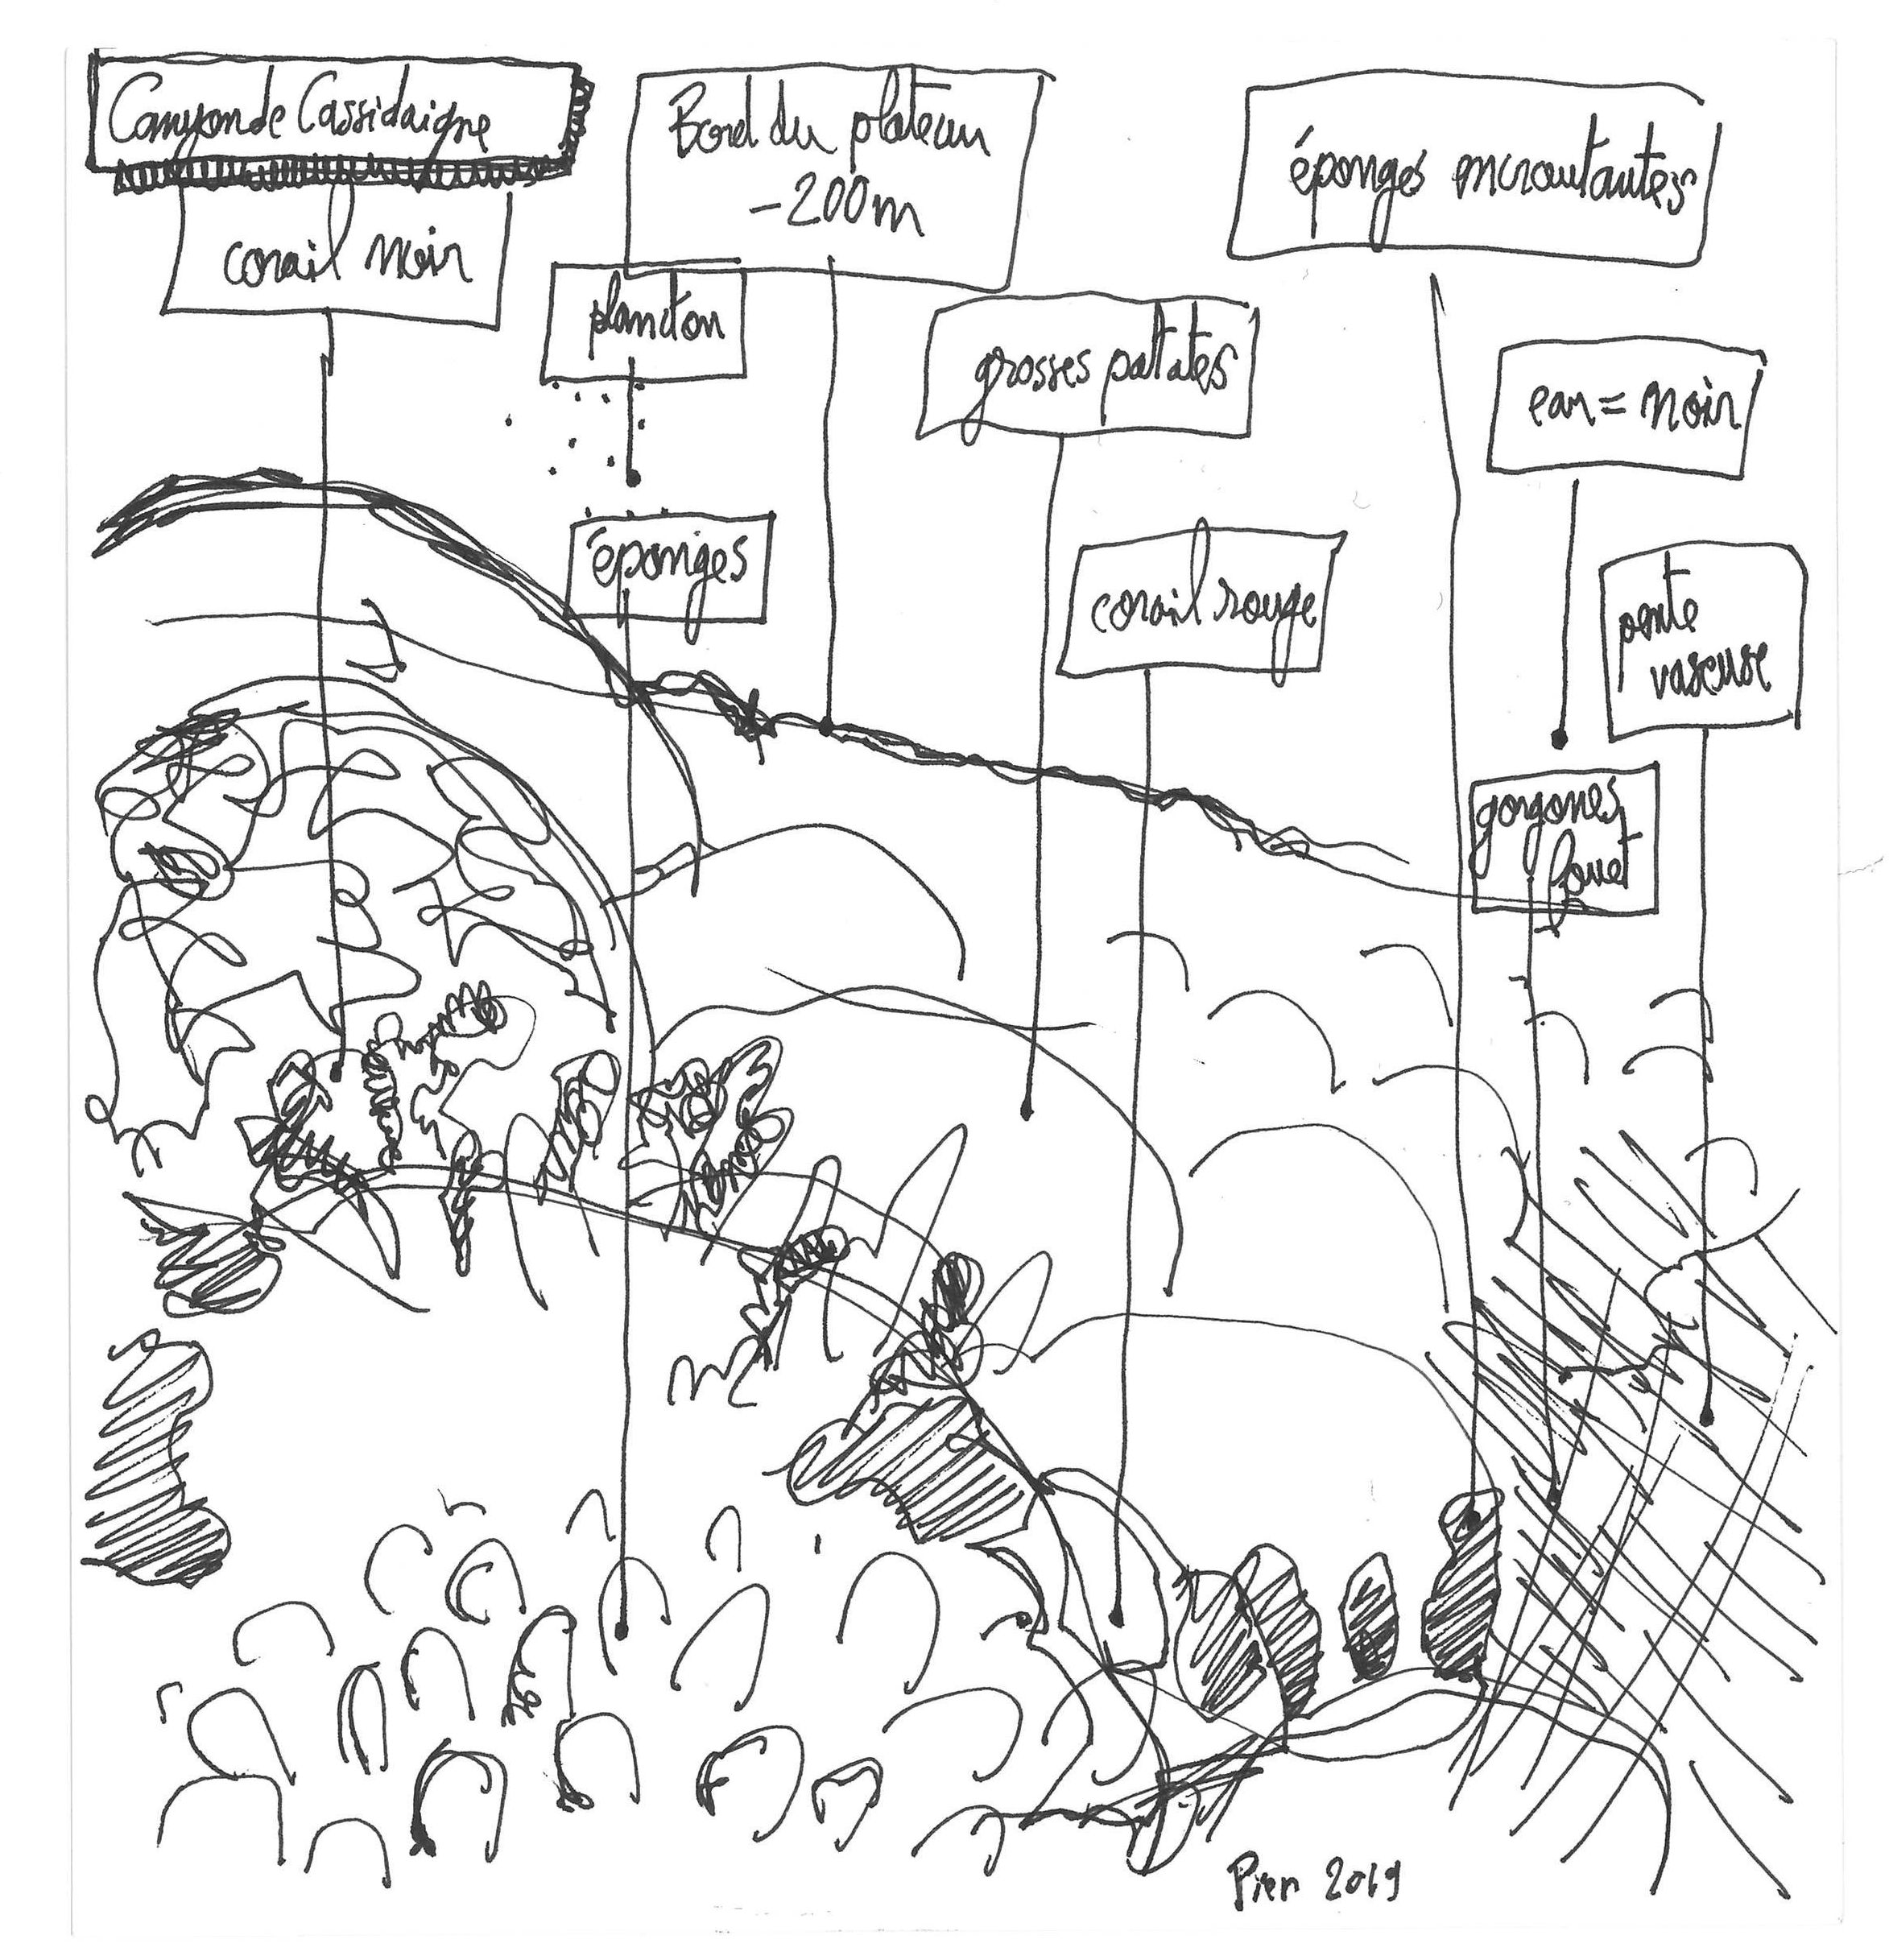 Canyon de Cassidaigne
corail noir
Bord du plateau
-200m
plancton
éponges
grosses patates
corail rouge
éponges encroutantes
eau = noir
pente
vaseuse
gorgones
fouet
Pier 2019